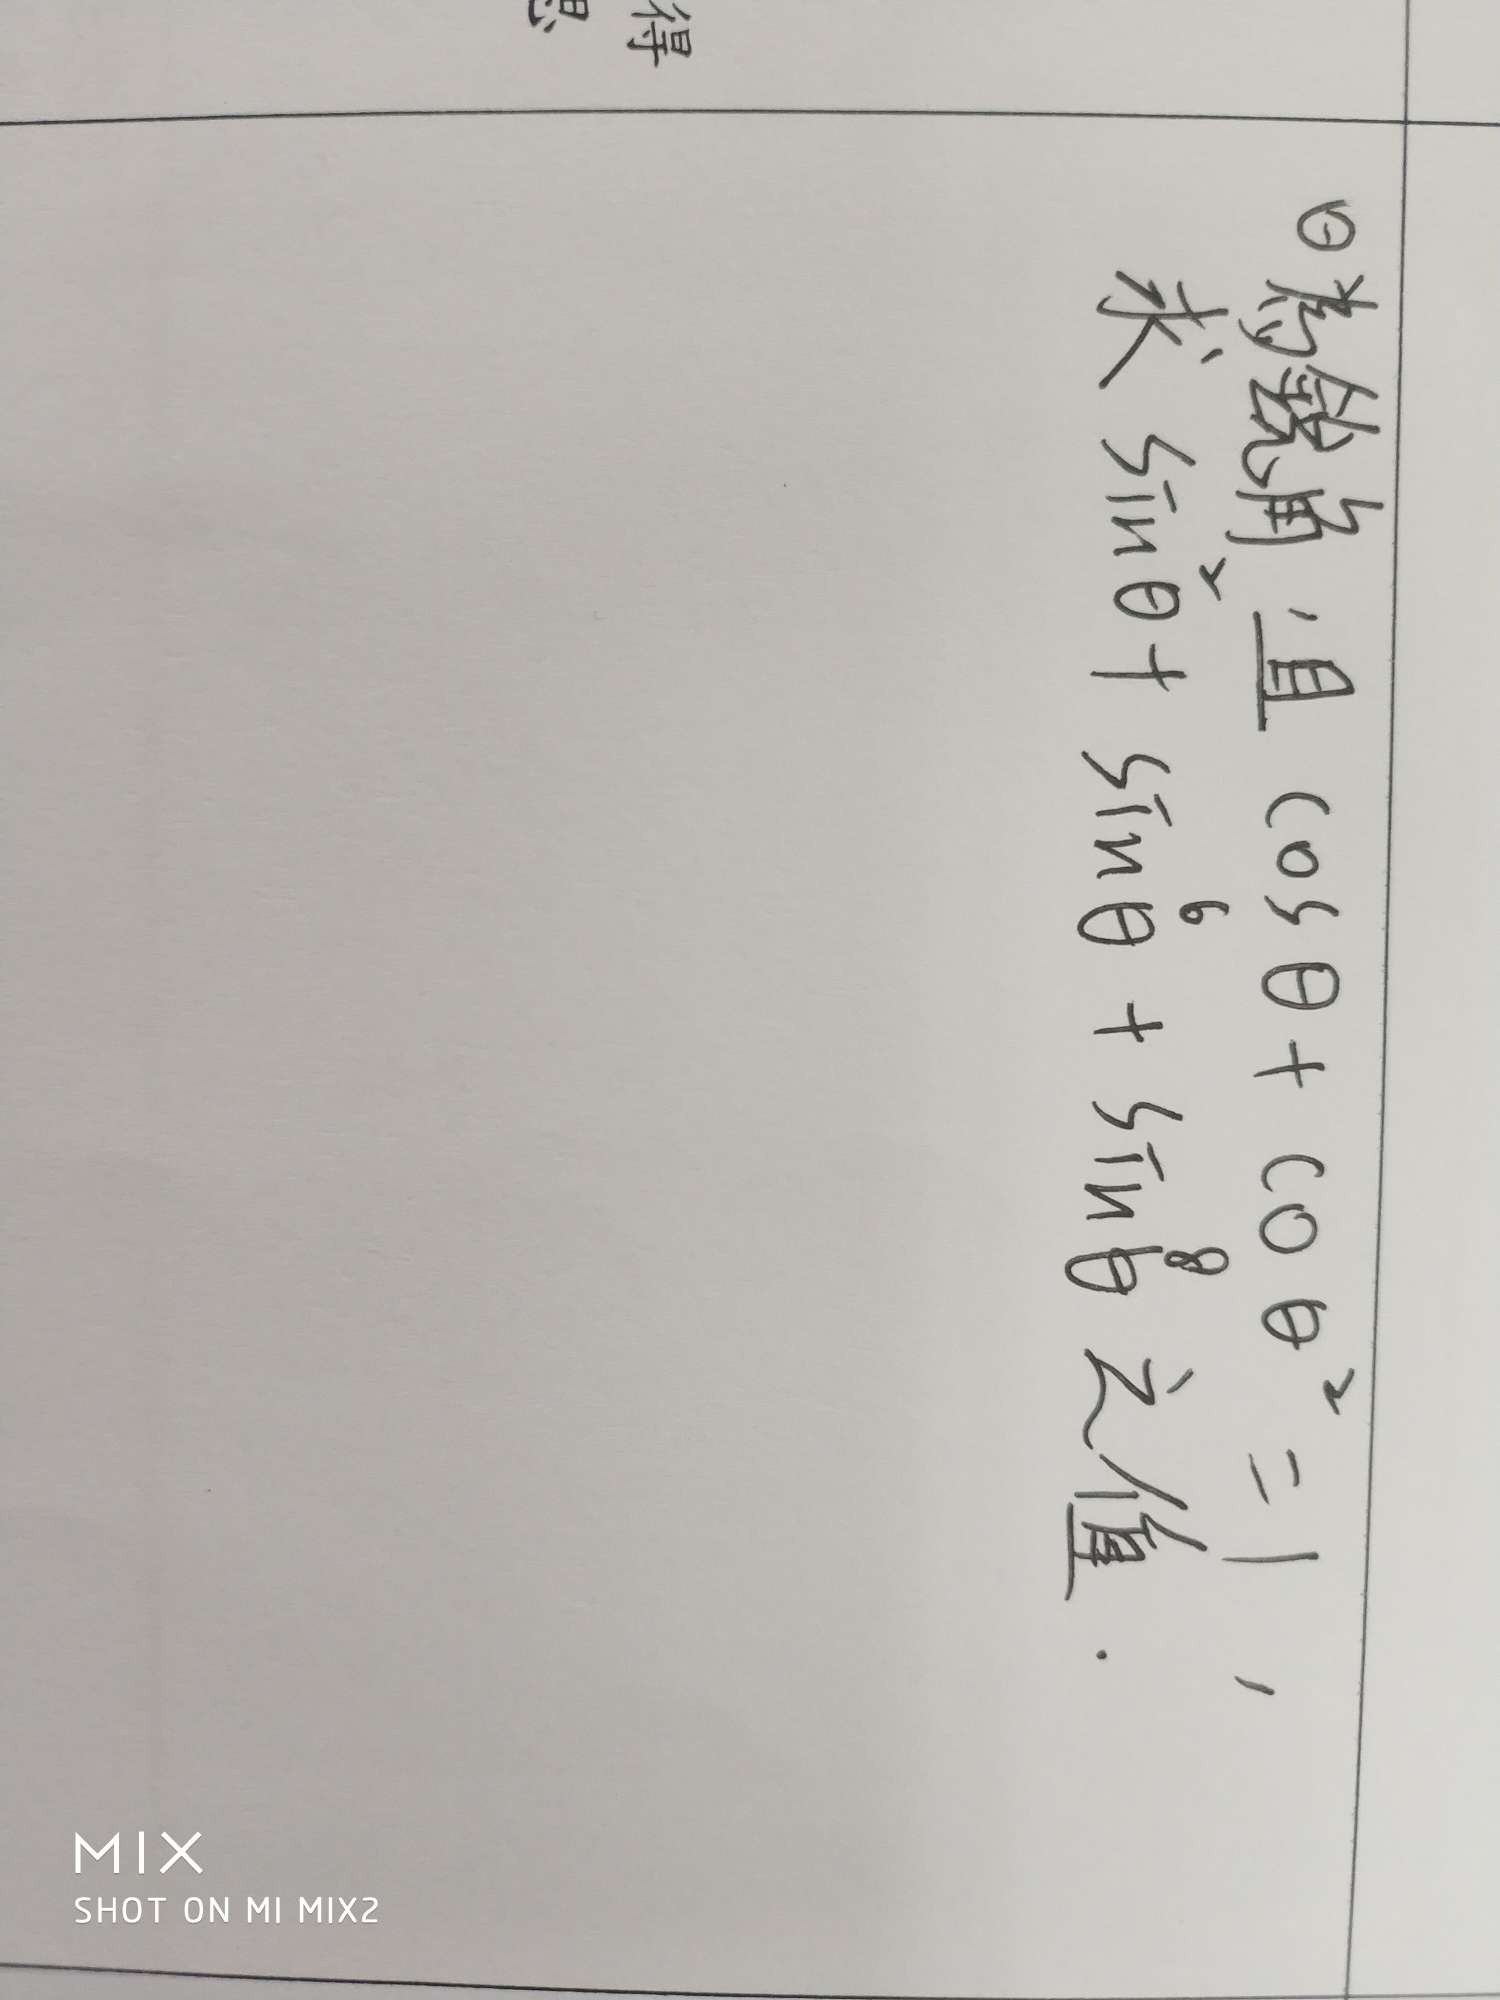 得
θ為銳角,且 cosθ + coθ² = 1,
求 sin²θ + sin⁶θ + sin⁸θ 之值.
MIX
SHOT ON MI MIX2